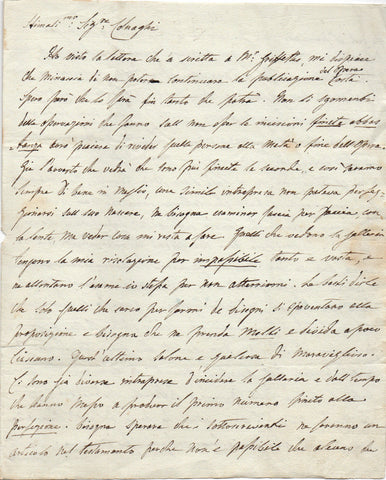 Stimatis.mo Sig.re Colnaghi
Ho visto la lettera che à scritta a Mr. Griffiths, mi dispiace
che Minaccia di non potere continuare la publicazione del Opera
Costà.
Spero però che lo farà più tanto che potrà. Non si sgomenti
delle osservazioni che fanno sull non esser le incisioni finite abbas
tanza avrò piacere di veder quelle persone alla Metà o fine dell'Opera.
Già l'averto che vedrà che sono più finite le seconde, e così saranno
sempre di bene in meglio, una simile intrapresa non poteva
sull suo nascere, ma bisogna esaminar faccia per faccia, con
la lente, ma veder cosa mi resta a fare. Quelli che vedono la galleria
tengono la mia risoluzione per impossibile tanto è vasta, e
ne allontano l'anime io stesso per non atterrirmi. La basti dirle
che solo quelli che sono per farmi de disegni si spaventano alla
proposizione e bisogna che ne prenda Molti e divida a poco
ciascuno. Quest'ultimo salone è qualcosa di Maraviglioso.
Ci sono già diverse intraprese d'incidere la galleria e dall tempo
che danno Messo a produr il primo numero finito alla
perfezione. Bisogna sperare che i sottoscriventi ne faranno un
articolo nel testamento perchè non'è possibile che alcuno de